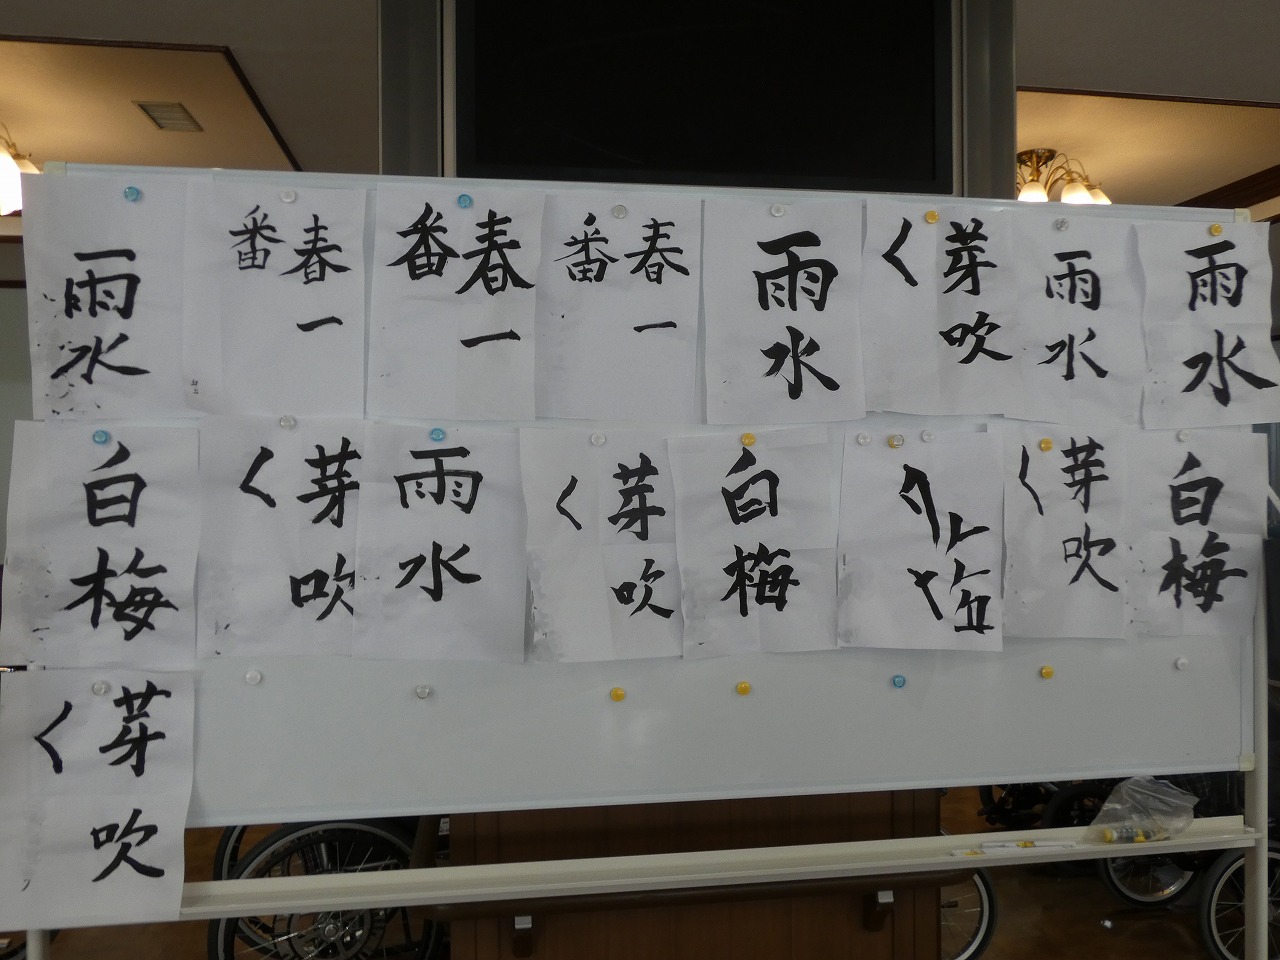 雨水
春一番
春一番
春一番
雨水
芽吹く
雨水
雨水
白梅
芽吹く
雨水
芽吹く
白梅
芽吹く
白梅
芽吹く